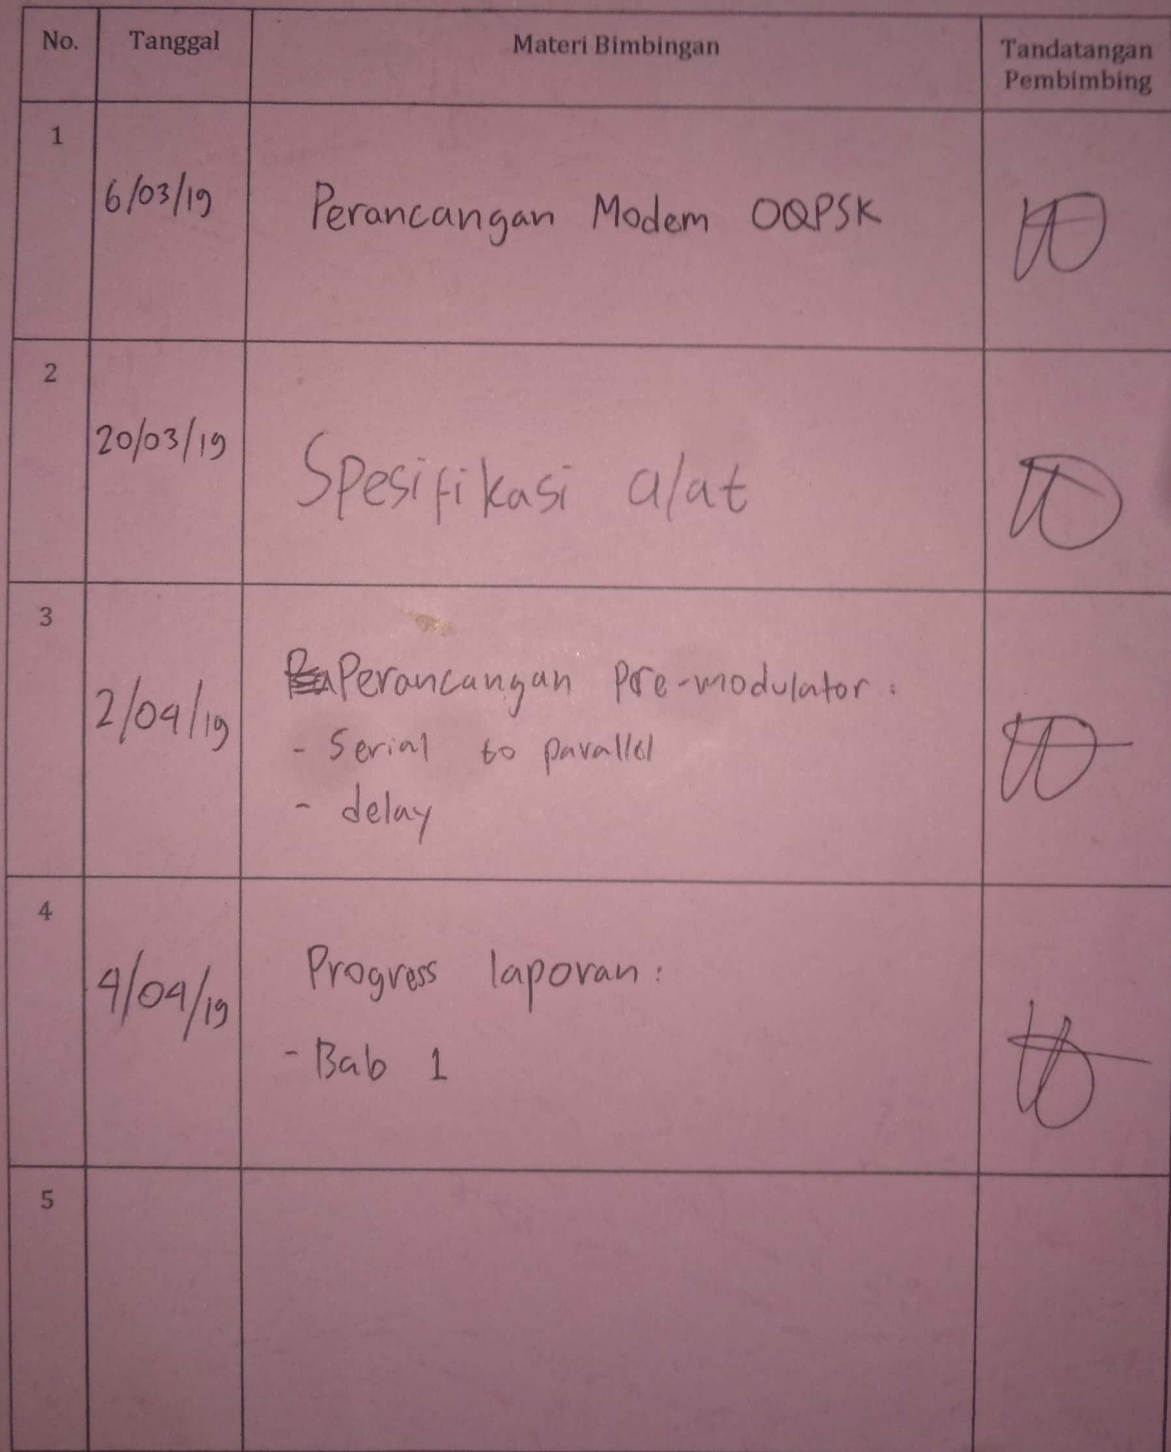 No. Tanggal Materi Bimbingan Tandatangan
Pembimbing
1
6/03/19 Perancangan Modem OQPSK
2
20/03/19 Spesifikasi alat
3
2/04/19 Perancangan Pre-modulator :
- Serial to parallel
- delay
4
4/04/19 Progress laporan :
- Bab 1
5